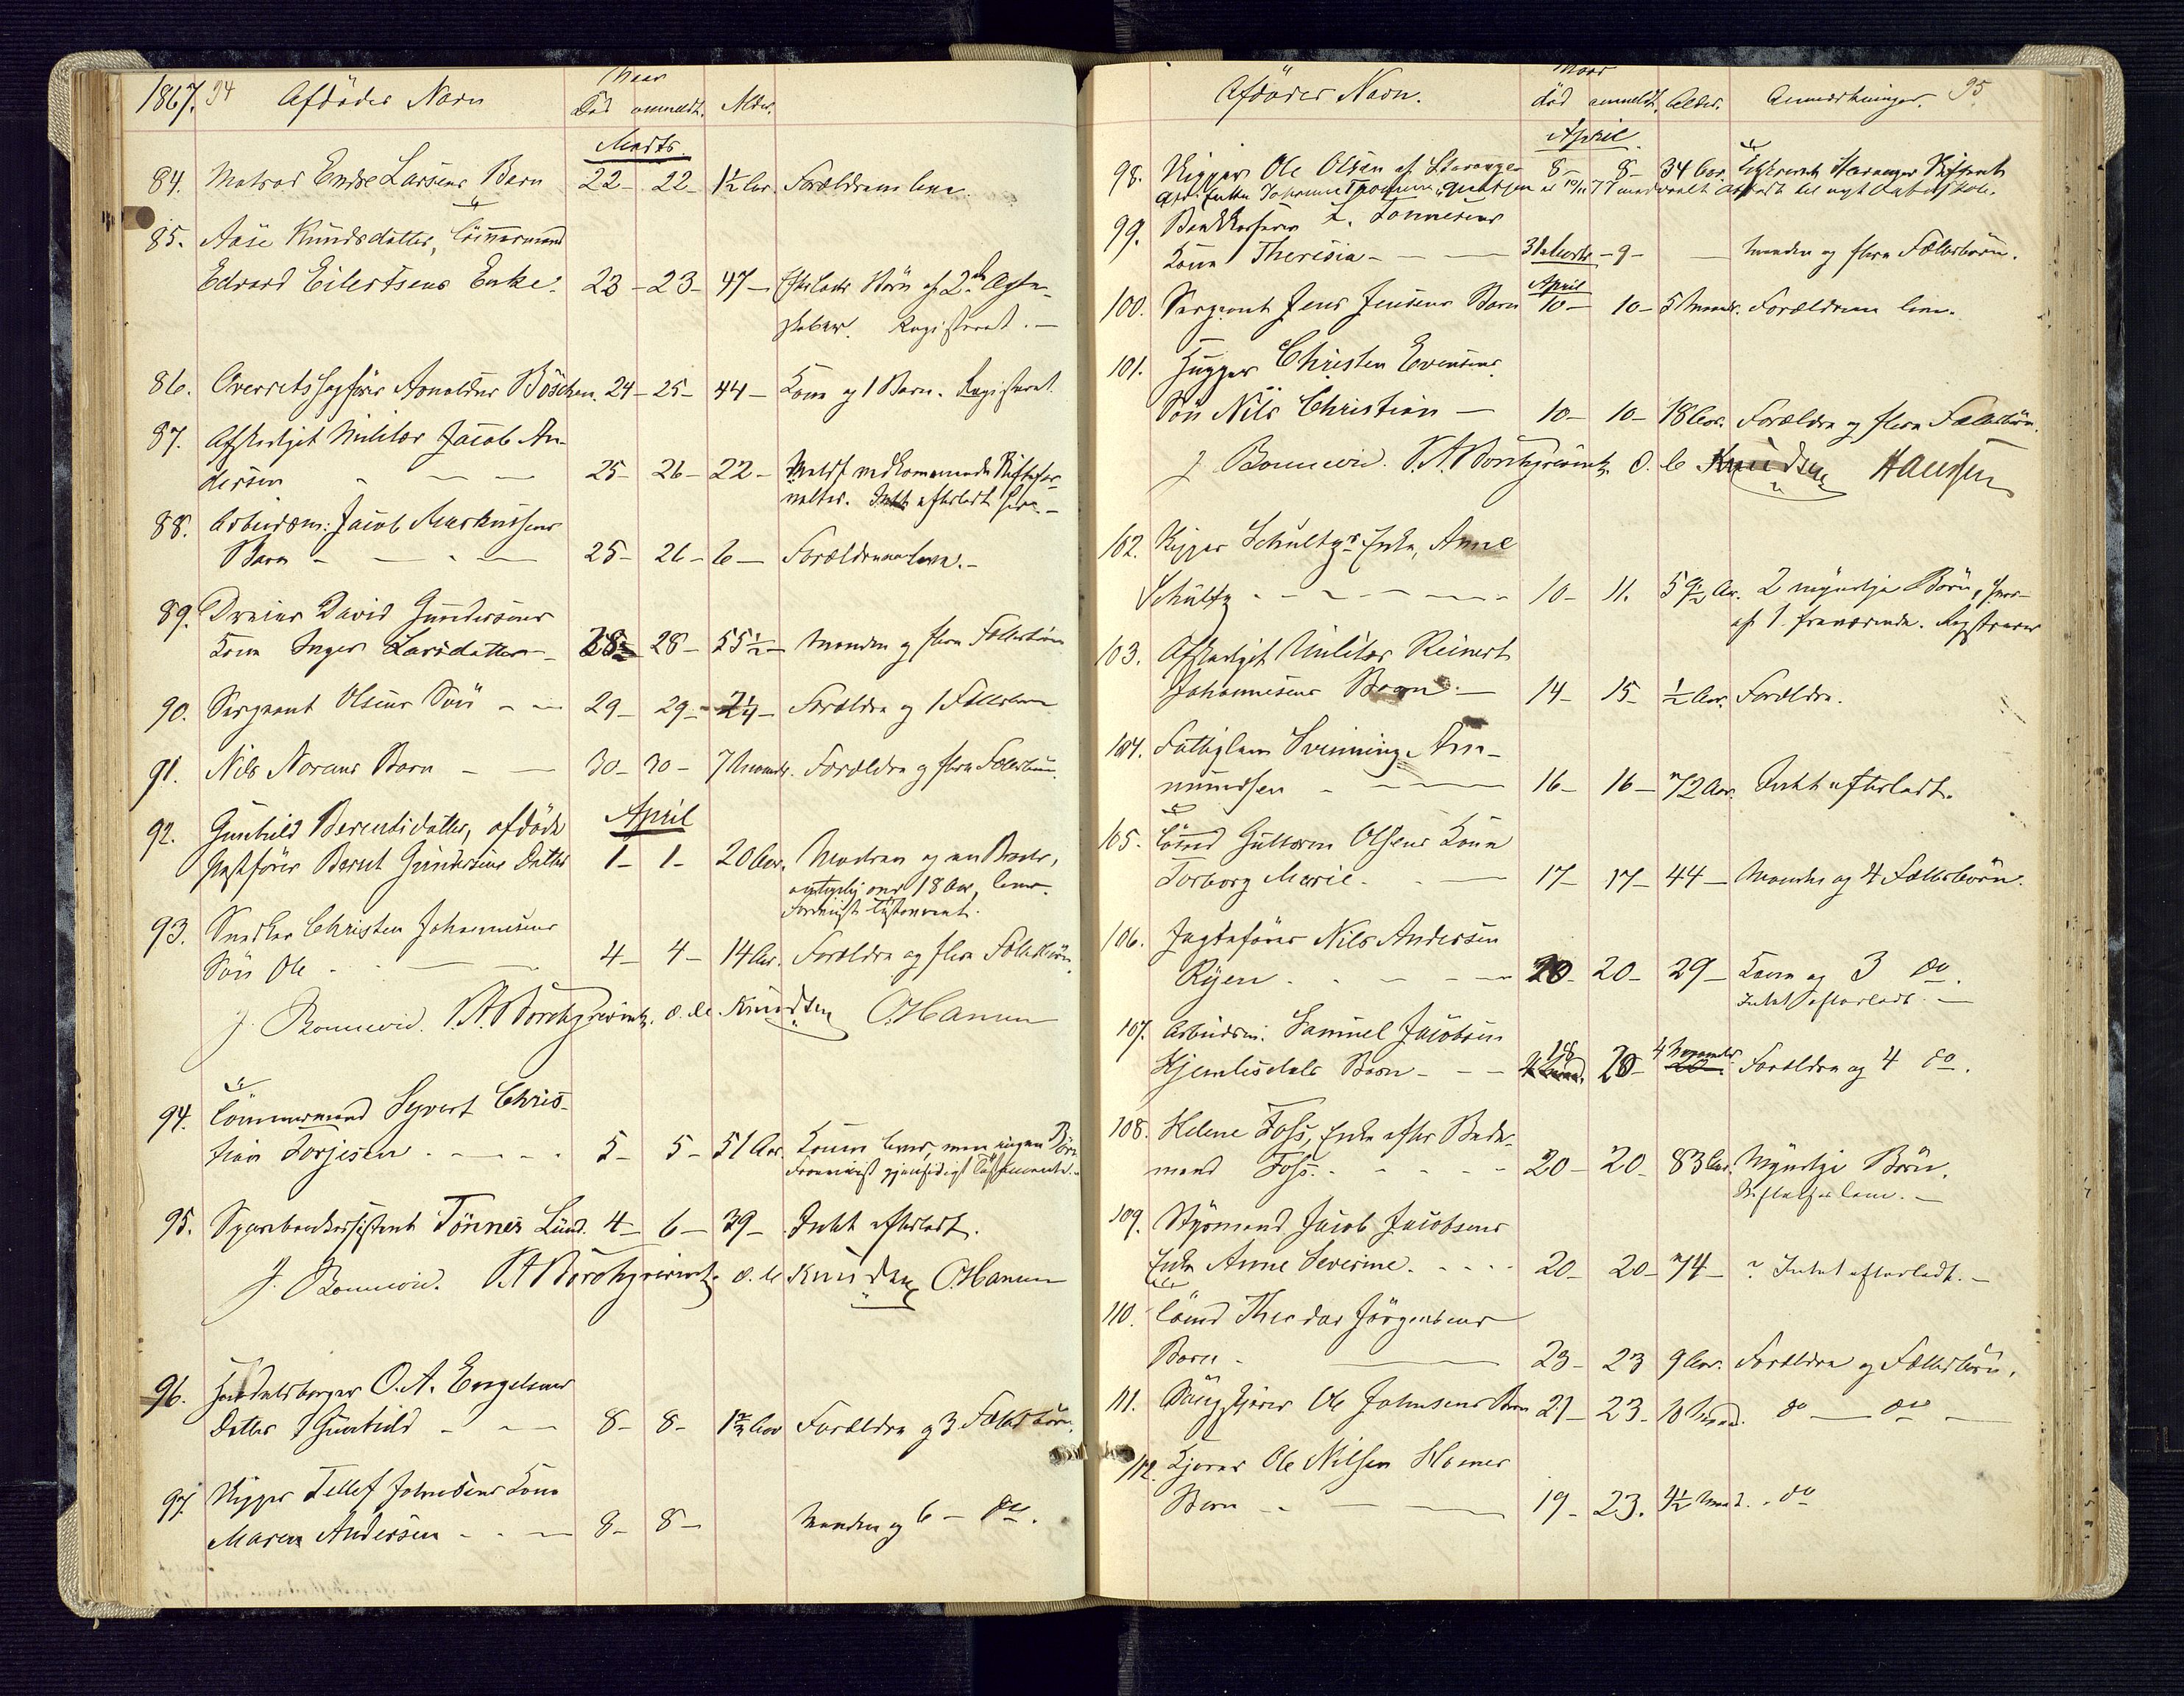 1867. 94 Afdødes Navn Naar Død anmeldt. Alder.
Marts.
84. Matros Endre Larsens Barn 22 - 22 - 1½ Aar. Forældrene leve.
85. Aase Knudsdatter, Tömmermand
Edvard Eilertsens Enke. 23 - 23 - 47 - Efterlader Børn af 2de Ægte-
skaber. Registreret. -
86. Overretssagfører Arnoldus Böschen. 24 - 25 - 44 - Kone og 1 Barn. Registreret.
87. Afskediget Militær Jacob An-
dersen - - - 25 - 26 - 22 - Meldt vedkommende Skiftefor-
valter. Intet efterladt her. -
88. Arbeidsm: Jacob Markussens
Barn - - - 25 - 26 - 6 - Forældrene leve. -
89. Dreier David Gundersens
Kone Inger Larsdatter - 28 - 28 - 55½ - Manden og flere Fællesbørn
90. Sergeant Olsens Søn - - 29 - 29 - 2¼ - Forældre og 1 Fællesbarn
91. Nils Norens Barn - - 30 - 30 - 7 Maaneder. Forældre og flere Fællesbørn.
April
92. Gunhild Berentsdatter, afdøde
Bernt Gundersens Datter 1 - 1 - 20 Aar. Moderen og en Broder,
over 18 Aar, lever.
Testament.
93. Snedker Christen Johannesens
Søn Ole - - 4 - 4 - 14 Aar. Forældre og flere Fællesbørn.
J. Bonnevie. P. A. Borchgrevink. O. C. Knudsen O. Hansen
94. Tömmermand Syvert Chris-
tian Torjesen - - - 5 - 5 - 51 Aar. Konen lever, men ingen Børn
gjensidigt Testamente. -
95. Sparebankassistent Tönnes Lund. 4 - 6 - 39 - Intet efterladt.
J. Bonnevie. P. A. Borchgrevink. O. C. Knudsen O. Hansen
96. Handelsborger O. A. Engelsens
Datter Gunhild - - 8 - 8 - 1½ Aar Forældre og 3 Fællesbørn.
97. Skipper Tellef Johnsens Kone
Maren Andersen - - - 8 - 8 - Manden og 6 - do.
Afdødes Navn. Naar død anmeldt. Alder. Anmærkninger. 95
April.
98. Skipper Ole Olsen af Stavanger 8 - 8 - 34 Aar. Stavanger Skifteret
99. L. Tønnesens
Kone Theresia - - - 31 Marts - 9 - - Manden og flere Fællesbörn.
April
100. Sergeant Jens Jensens Barn 10 - 10 - 5 Maaneder. Forældrene leve.
101. Hugger Christen Evensens
Søn Nils Christian - 10 - 10 - 18 Aar. Forældre og flere Fællesbørn.
J. Bonnevie. P. A. Borchgrevink. O. C. Knudsen Hansen
102. Skipper Schultz's Enke, Anne
Schultz - - - - - 10 - 11. 59½ Aar. 2 myndige Børn, hvor-
af 1 fraværende. Registreres
103. Afskediget Militær Reinert
Johannesens Barn. - 14 - 15 - ½ Aar. Forældre.
104. Fattiglem Svenning Am-
mundsen - - - 16 - 16 - 72 Aar. Intet efterladt.
105. Tömd Guttorm Olsens Kone
Torborg Marie. - - 17 - 17 - 44 - Manden og 4 Fællesbörn.
106. Jagtefører Nils Andersen
Ryen - - - - 20 - 20 - 29 - Kone og 3 do.
Intet efterladt. -
107. Arbeidsm. Samuel Jacobsen
Hjemlisdals Barn - - - 18 20 - 4 Maaneder. Forældre og 4 do.
108. Helene Foss, Enke efter
mand Foss. - - - - 20 - 20 - 83 Aar. Myndige Børn.
109. Styrmand Jacob Jacobsens
Enke Anne Severine. - - - 20 - 20 - 74 - ? Intet efterladt. -
110. Tömd Theodor Jörgensens
Barn - - 23 - 23 9 Aar. Forældre og Fællesbörn.
111. Ole Johnsens Barn 21 - 23 - 10 Maaned. do - do -
112. Ole Nilsen
Barn - - - 19 - 23. 4½ Maaned. - do